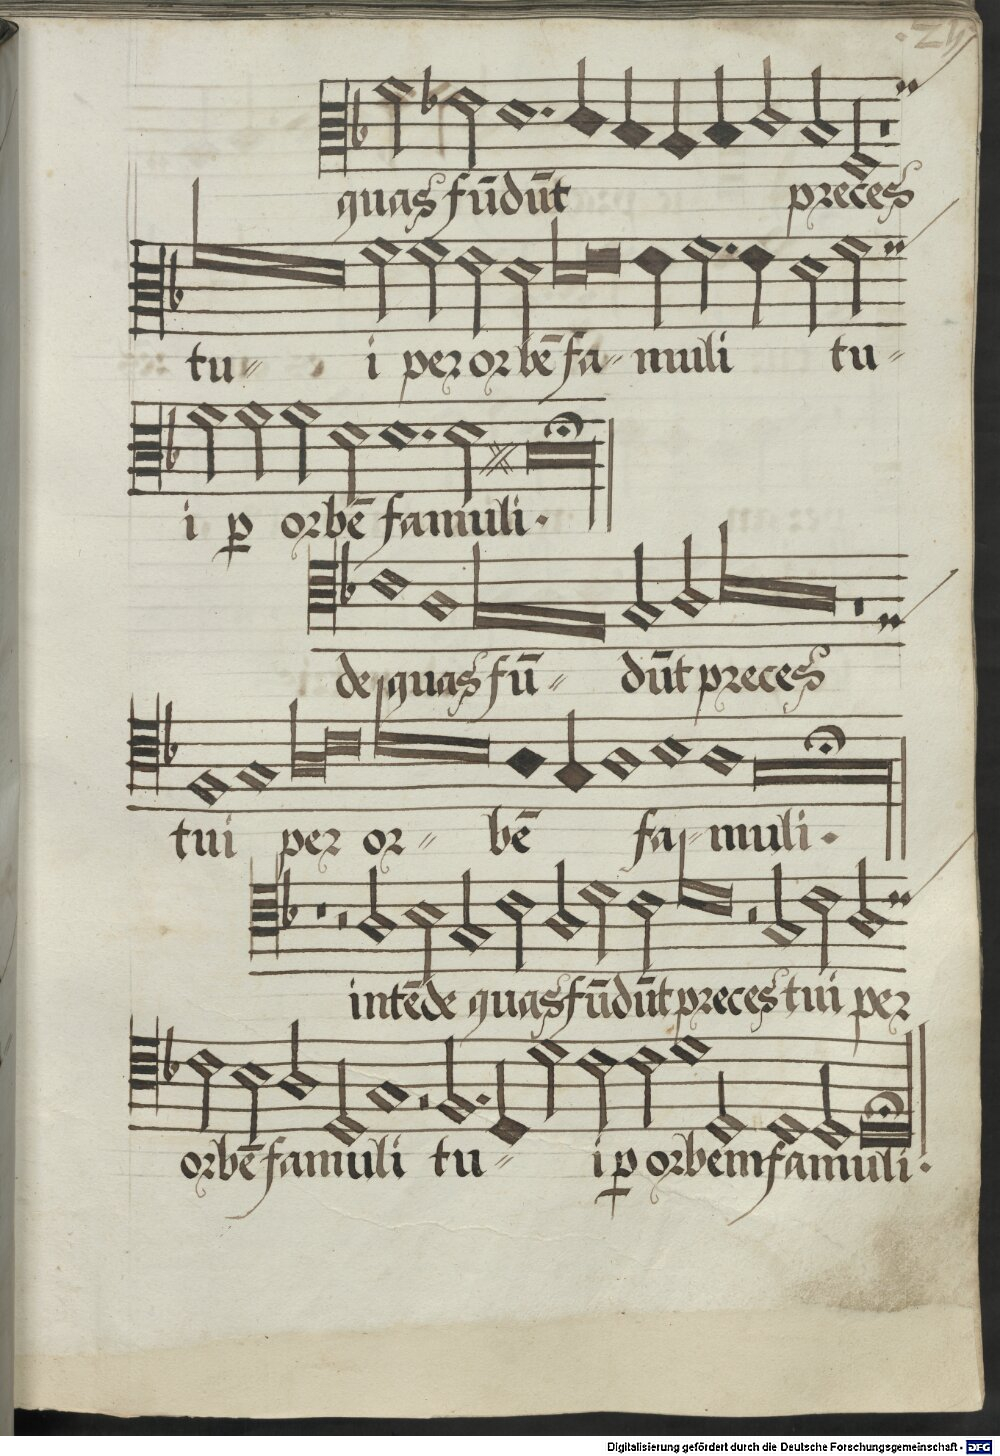 quas fūdūt preces
tu- i per orbē fa- muli tu-
i ꝑ orbē famuli.
de quas fū- dūt preces
tui per or- bē fa- muli.
intēde quas fūdūt preces tui per
orbē famuli tu- i ꝑ orbem famuli.
Digitalisierung gefördert durch die Deutsche Forschungsgemeinschaft - DFG